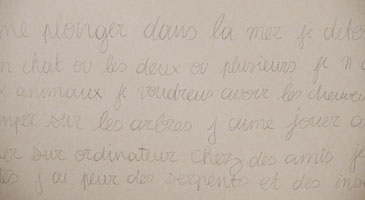 me plonger dans la mer je déte
n chat ou les deux ou plusieurs je n'a
x animaux je voudrais avoir les cheveu
mper sur les arbres j'aime jouer a
er sur ordinateur cherz des amis je
tés j'ai peur des serpents et des ins